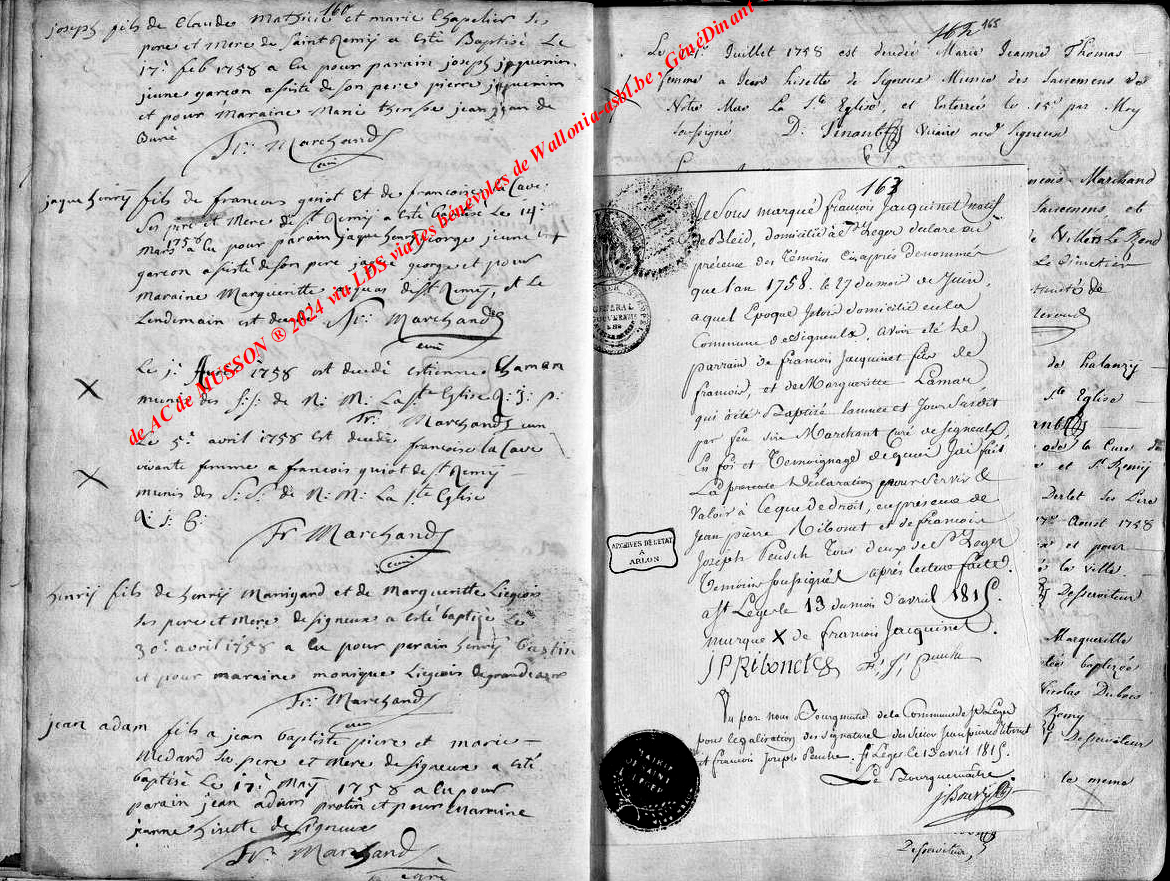 160
joseph fils de Claude Mathieu et marie Chapelier ses
pere et Mere de Saint Remÿ a Esté Baptisé Le
17: feb 1758 a Eu pour parain joseph jaquemin
jeune garçon assisté de son pere pierre jaquemin
et pour Maraine Marie therese jean jean de
Fr: Marchand
curé
jaque henrÿ fils de francois guiot Et de francoise la Cave
Ses pere et Mere de St Remÿ a Esté Baptisé Le 14:
Mars 1758 a Eu pour parain jaque henrÿ georges jeune
garcon assisté de son pere jaque george et pour
maraine Marguerite de St Remÿ, et Le
Lendemain est decedé Fr: Marchand
curé
Le j: Avril 1758 est decedé estienne Chamen
munis des S: S: de N: M: La Ste Eglise
Fr: Marchand curé
Le 5: avril 1758 Est decedé francoise la Cave
vivante femme a francois guiot de St Remÿ
munis des S: S: de N: M: La Ste Eglise
Fr: Marchand
curé
henrÿ fils de henrÿ Marrigand et de Marguerite Liegeois
ses pere et Mere de Signeux a esté baptizé Le
30: avril 1758 a Eu pour parain henrÿ bastin
et pour maraine monique Liegeois de
Fr: Marchand
curé
jean adam fils a jean baptiste pierre et marie
Medard Ses pere et Mere de Signeux a esté
baptisé Le 12: Maÿ 1758 a Eu pour
parain jean adam protin et pour Marraine
jeanne de Signeux
Fr: Marchand
curé
165
Le Juillet 1758 est decedée Marie Jeanne Thomas
femme a Jean Lisette de Signeux Munie des Sacremens de
Notre Mere La Ste Eglise, et Enterrée le 15e par Moy
Soussigné D. Tinant Vicaire a Signeux
163
Je Sous marqué francois Jacquinet natif
de Bleid, domicilié a St Leger declare en
présence des témoins Ciaprès denommés
que l'an 1758. le 27 du mois de Juin,
a quel Epoque Jetois domicilié en la
Commune de Signeulx, avoir eté Le
parrain de francois Jacquinet fils de
francois, et de Margueritte Lamar,
qui a été Baptisé Lannée et Jour Susdit
par feu sire Marchant Curé de Signeulx,
En foi et Temoignage de quoi Jai fait
La presente déclaration pour servir &
Valoir à ce que de droit, en présence de
Jean pierre Ribonet et de francois
Joseph Peusch tous deux de St Leger
Temoins Soussignés après lecture faite.
a St Leger le 13 du mois d'avril 1815.
marque X de francois Jacquinet.
JPRibonet
Vu par nous Bourguemaitre de la Commune de St Leger
pour legalisation des signatures des Sieurs Jean pierre Ribonet
et francois Joseph Peuche. St Leger le 13 avril 1815.
Le Bourguemaitre
Marchand
Sacremens et
de Villers La Loue
Le Cimetier
de halanzy
Ste Eglise
La Cure
et St Remy
Derlet Ses Pere
Aoust 1758
et pour
la ville
Desserviteur
Margueritte
baptizée
Nicolas Dubois
Remy
Desserviteur
la meme
Desserviteur
ARCHIVES DE L'ETAT
A
ARLON
de AC de MUSSON ® 2024 via LDS via les bénévoles de Wallonia-asbl.be, GénéDinant